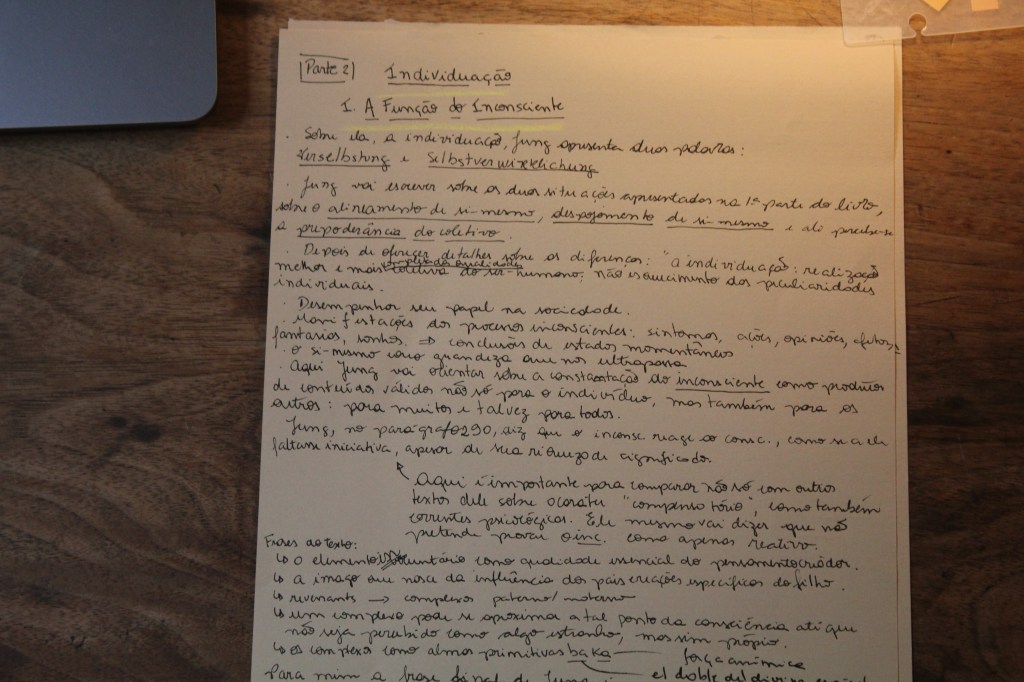 Parte 2 Individuação
I. A Função do Inconsciente
. Sobre ela, a individuação, Jung apresenta duas palavras:
Verselbstung e Selbstverwirklichung
. Jung vai escrever sobre as duas situações apresentadas na 1ª parte do livro,
sobre o alineamento de si-mesmo, despojamento de si-mesmo e ali percebe-se
a prepoderância do coletivo.
. Depois de oferecer detalhes sobre as diferenças: "a individuação: realização
melhor e mais coletiva das qualidades do ser-humano; não esquecimento das peculiaridades
individuais.
. Desempenhar seu papel na sociedade.
. Manifestações dos processos inconscientes: sintomas, ações, opiniões, afetos,
fantasias, sonhos. ⇒ conclusões de estados momentâneos
. O si-mesmo como grandeza que nos ultrapassa
. Aqui Jung vai orientar sobre a constatação do inconsciente como produtos
de conteúdos válidos não só para o indivíduo, mas também para os
outros: para muitos e talvez para todos.
Jung, no parágrafo 290, diz que o inconsc reage ao consc., como se a ele
faltasse iniciativa, apesar de sua riqueza de significado.
Aqui é importante para comparar não só com outros
textos dele sobre o caráter "compensatório", como também
correntes psicológicas. Ele mesmo vai dizer que não
pretende provar o inc. como apenas reativo.
Frases ao texto:
↳ O elemento involuntário como qualidade essencial do pensamento criador.
↳ a imago que nasce da influência dos pais e reações específicas do filho.
↳ revenants → complexos paterno/materno
↳ um complexo pode se aproximar a tal ponto da consciência até que
não seja percebido como algo estranho, mas sim própio.
↳ os complexos como almas primitivas baka — força anímica
Para mim a frase final de Jung el doble del divino